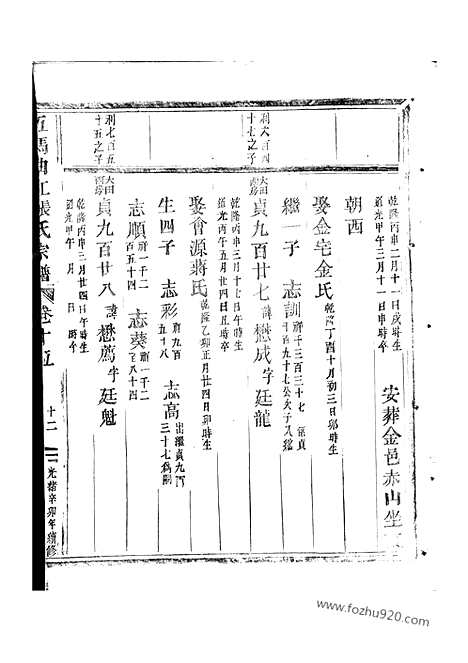 乾隆丙申二月十一日戌時生
道光甲午三月十一日申時卒
安葬金邑赤山坐
朝西
娶金宅金氏乾隆丁酉十月初三日卯時生
繼一子 志訓
利六百四十七之子
貞九百廿七諱懋成字廷龍
乾隆丙申三月十七日午時生
道光丙午五月廿四日丑時卒
娶會源蔣氏乾隆乙卯正月廿四日卯時生
生四子 志彩府九百五十八 志高出繼貞九百三十七爲嗣
志順府一千二百五十四 志葵府一千二百八十四
利七百五十五之子
貞九百廿八諱懋薦字廷魁
乾隆丙申三月廿四日午時生
道光甲午 月 日 時卒
五馬曲江張氏宗譜 卷十五 十二 光緒辛卯年續修
www.fozhu920.com